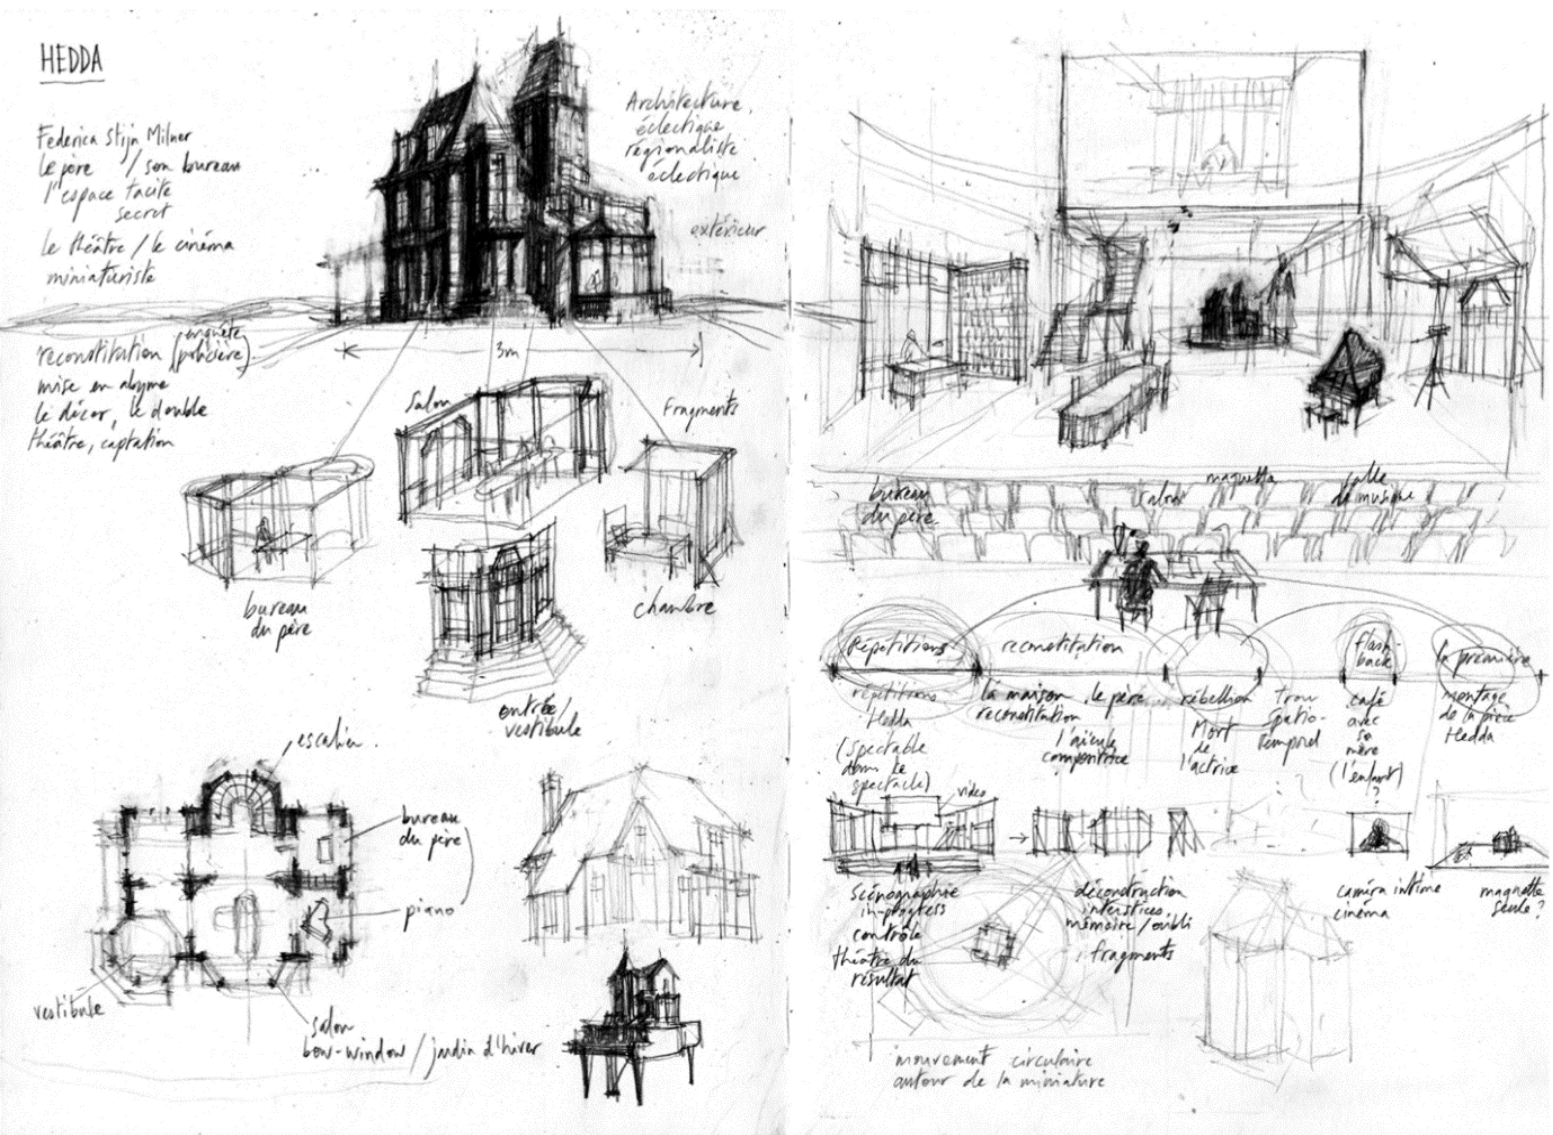 HEDDA
Federica Stijn Milner
le père / son bureau
l'espace tacite
secret
le théâtre / le cinéma
miniaturiste
Architecture
éclectique
régionaliste
éclectique
extérieur
reconstitution (enquête
policière)
mise en abyme
le décor, le double
théâtre, captation
3m
Salon
Fragments
bureau
du père
chambre
entrée/
vestibule
escalier
bureau
du père
piano
vestibule
salon
bow-window / jardin d'hiver
bureau
du père
salon
maquette
salle
de musique
Répétitions
reconstitution
flash-
back
la première
répétitions
Hedda
(spectable
dans le
spectacle)
la maison
reconstitution
le père
l'aïeule
compositrice
rébellion
Mort
de
l'actrice
trou
spatio-
temporel
café
avec
sa
mère
(l'enfant)
?
montage
de la pièce
Hedda
video
scénographie
in-progress
contrôle
théâtre du
résultat
déconstruction
interstices
mémoire/oubli
fragments
caméra intime
cinéma
maquette
seule?
mouvement circulaire
autour de la miniature